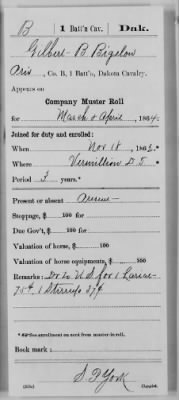 B | 1 Batt'n Cav. | Dak.
Gilbert B. Bigelow
Priv, Co. B, 1 Batt'n, Dakota Cavalry.
Appears on
Company Muster Roll
for March & April, 1864.
Joined for duty and enrolled:
When Nov 18, 1863.
Where Vermillion D. T.
Period 3 years.*
Present or absent
Stoppage, $ 100 for
Due Gov't, $ 100 for
Valuation of horse, $ 100
Valuation of horse equipments, $ 100
Remarks: Due U S for 1
75¢ 1 Stirrups 37¢
*See enrollment on card from muster-in roll.
Book mark:
S. D. York
(358) Copyist.